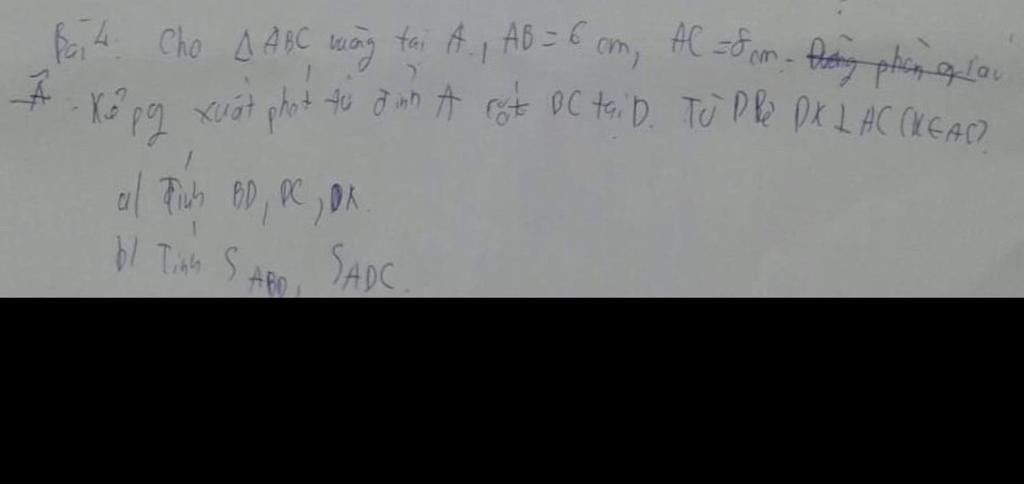 Bài 4: Cho Δ ABC vuông tại A, AB = 6 cm, AC = 8 cm. Đường phân g tại
Â - Kẻ pg xuất phát từ đỉnh A cắt BC tại D. Từ D kẻ DK ⊥ AC (K ∈ AC).
a/ Tính BD, DC, DK.
b/ Tính S ABD, S ADC.